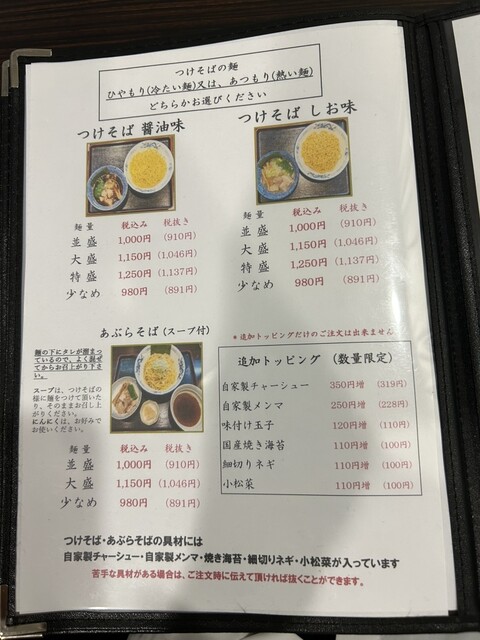 つけそばの麺
ひやもり(冷たい麺)又は、あつもり(熱い麺)
どちらかお選びください
つけそば 醤油味
麺量 税込み 税抜き
並盛 1,000円 (910円)
大盛 1,150円 (1,046円)
特盛 1,250円 (1,137円)
少なめ 980円 (891円)
つけそば しお味
麺量 税込み 税抜き
並盛 1,000円 (910円)
大盛 1,150円 (1,046円)
特盛 1,250円 (1,137円)
少なめ 980円 (891円)
あぶらそば (スープ付)
麺の下にタレが溜まっ
ているので、よく混ぜ
てからお召上がり下さ
い。
スープは、つけそばの
様に麺をつけて頂いた
り、そのままお召し上
がりください。
にんにくは、お好みで
お使いください。
麺量 税込み 税抜き
並盛 1,000円 (910円)
大盛 1,150円 (1,046円)
少なめ 980円 (891円)
*追加トッピングだけのご注文は出来ません
追加トッピング (数量限定)
自家製チャーシュー 350円増 (319円)
自家製メンマ 250円増 (228円)
味付け玉子 120円増 (110円)
国産焼き海苔 110円増 (100円)
細切りネギ 110円増 (100円)
小松菜 110円増 (100円)
つけそば・あぶらそばの具材には
自家製チャーシュー・自家製メンマ・焼き海苔・細切りネギ・小松菜が入っています
苦手な具材がある場合は、ご注文時に伝えて頂ければ抜くことができます。